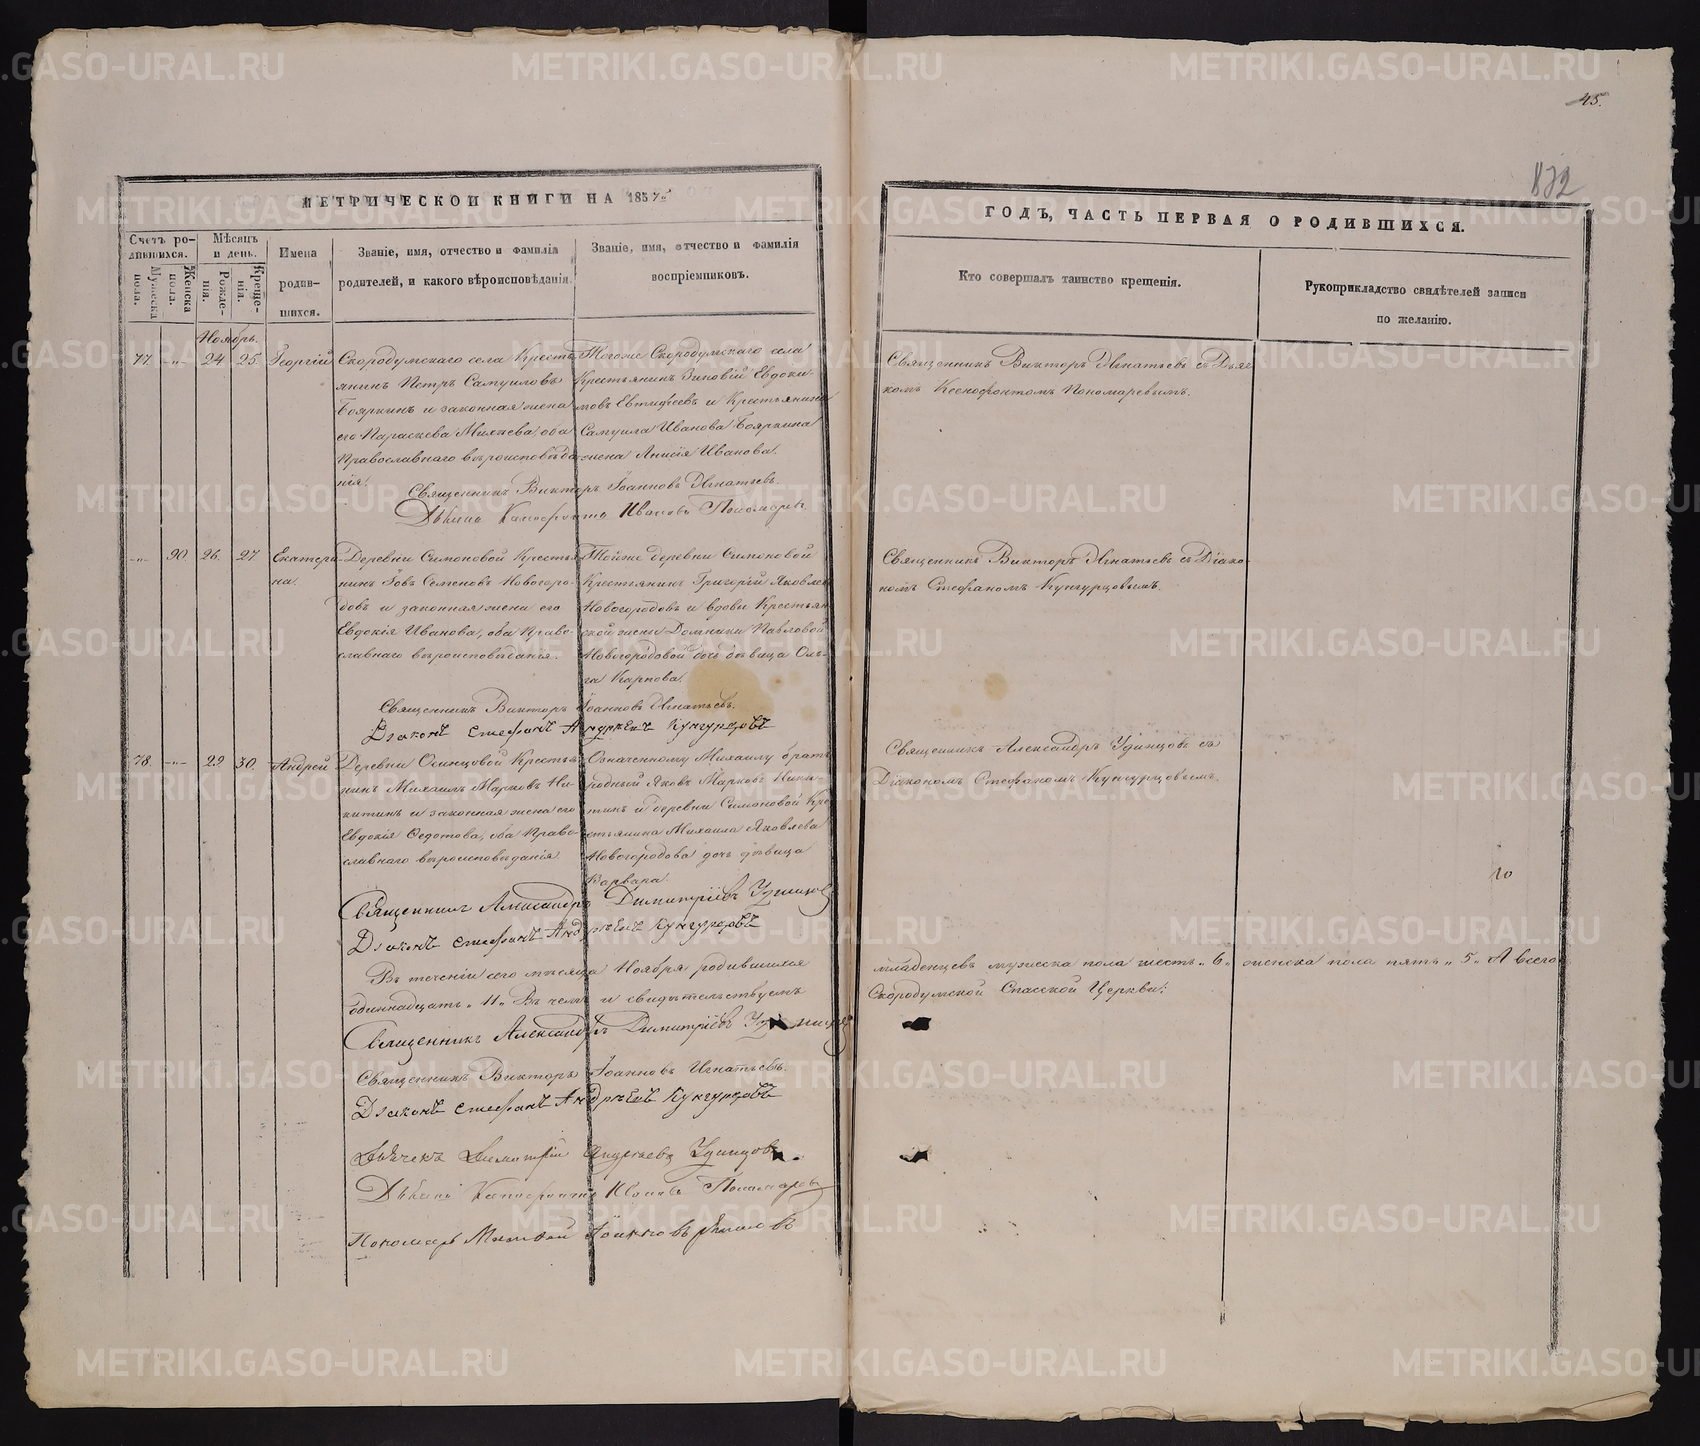 45.
872
МЕТРИЧЕСКОЙ КНИГИ НА 1857й
ГОДЪ, ЧАСТЬ ПЕРВАЯ О РОДИВШИХСЯ.
Счетъ родившихся.
Мужеска пола.
Женска пола.
Мѣсяцъ и день.
Рожденія.
Крещенія.
Имена родившихся.
Званіе, имя, отчество и фамилія
родителей, и какого вѣроисповѣданія.
Званіе, имя, отчество и фамилія
воспріемниковъ.
Кто совершалъ таинство крещенія.
Рукоприкладство свидѣтелей записи
по желанію.
Ноябрь.
77. -„- 24 25. Георгій
Скородумскаго села Кресть-
янинъ Петръ Самуиловъ
Бояркинъ и законная жена
его Параскева, оба
Православнаго вѣроисповѣда-
нія.
Тогоже Скородумскаго села
Крестьянинъ Зиновій Евдоки-
мовъ Евтифеевъ и Крестьянина
Самуила Иванова Бояркина
жена Анисія Иванова.
Священникъ Викторъ Игнатьевъ съ Дьяч-
комъ Ксенофонтомъ Пономаревымъ.
Священникъ Викторъ Іоанновъ Игнатьевъ.
Ивановъ Пономаревъ
-„- 90. 26. 27 Екатери-
на.
Деревни Симоновой Крестья-
нинъ Іовъ Семеновъ Новогоро-
довъ и законная жена его
Евдокія Иванова, оба Право-
славнаго вѣроисповѣданія.
Тойже деревни Симоновой
Крестьянинъ Григорій Яковлевъ
Новогородовъ и вдовы Крестьян-
ской жены Домники Павловой
Новогородовой дочь дѣвица Оль-
га Карпова.
Священникъ Викторъ Игнатьевъ съ Діако-
номъ Стефаномъ Кунгурцовымъ.
Священникъ Викторъ Іоанновъ Игнатьевъ.
Діаконъ Стефанъ Андреевъ Кунгурцовъ
78. -„- 29 30. Андрей
Деревни Осинцовой Крестья-
нинъ Михаилъ Марковъ Ни-
китинъ и законная жена его
Евдокія Федотова, оба Право-
славнаго вѣроисповѣданія.
Означенному Михаилу братъ
родный Яковъ Марковъ Ники-
тинъ и деревни Симоновой Кре-
стьянина Михаила Яковлева
Новогородова дочь дѣвица
Варвара.
Священникъ Александръ Удинцовъ съ
Діакономъ Стефаномъ Кунгурцовымъ.
Священникъ Александръ Димитріевъ Удинцовъ
Діаконъ Стефанъ Андреевъ Кунгурцовъ
Въ теченіи сего мѣсяца Ноября родившихся
младенцевъ мужеска пола шесть „6„ женска пола пять „5„ А всего
одиннадцать „11„ Въ чемъ и свидѣтельствуемъ
Скородумской Спасской Церкви:
Священникъ Александръ Димитріевъ Удинцовъ
Священникъ Викторъ Іоанновъ Игнатьевъ.
Діаконъ Стефанъ Андреевъ Кунгурцовъ
Дьячекъ Димитрій Удинцовъ.
Ивановъ Пономаревъ
Пономарь Іоанновъ
METRIKI.GASO-URAL.RU